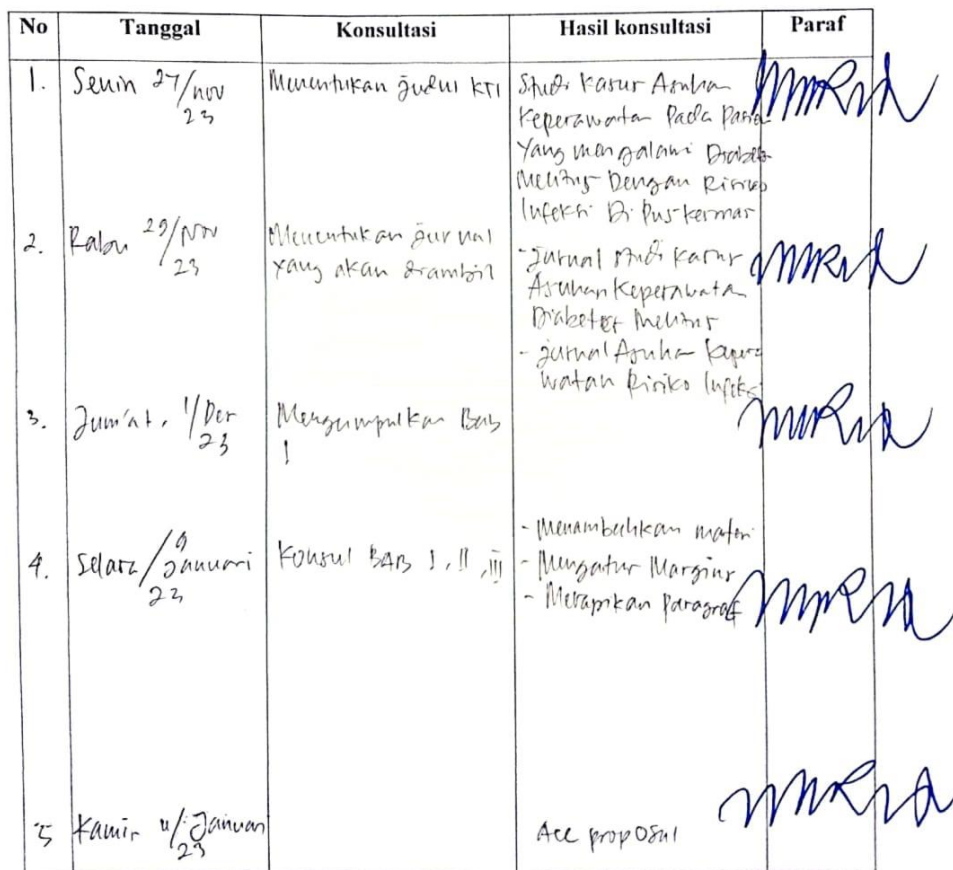 No Tanggal Konsultasi Hasil konsultasi Paraf
1. Senin 27/nov 23
Menentukan judul KTI
Studi Kasus Asuhan
Keperawatan Pada Pasie
Yang mengalami Diabetes
Melitus Dengan Risiko
Infeksi Di Puskesmas
2. Rabu 29/Nov 23
Menentukan jurnal
yang akan diambil
- jurnal studi kasus
Asuhan Keperawata
Diabetes Melitus
- jurnal Asuha Kepera
watan Risiko Infeksi
3. Jum'at, 1/Des 23
Mengumpulkan Bab
I
4. Selasa/9 Januari 23
Konsul BAB I, II, III
- Menambahkan materi
- Mengatur Margins
- Merapikan Paragraf
5 Kamis 11/Januari 23
Acc proposal